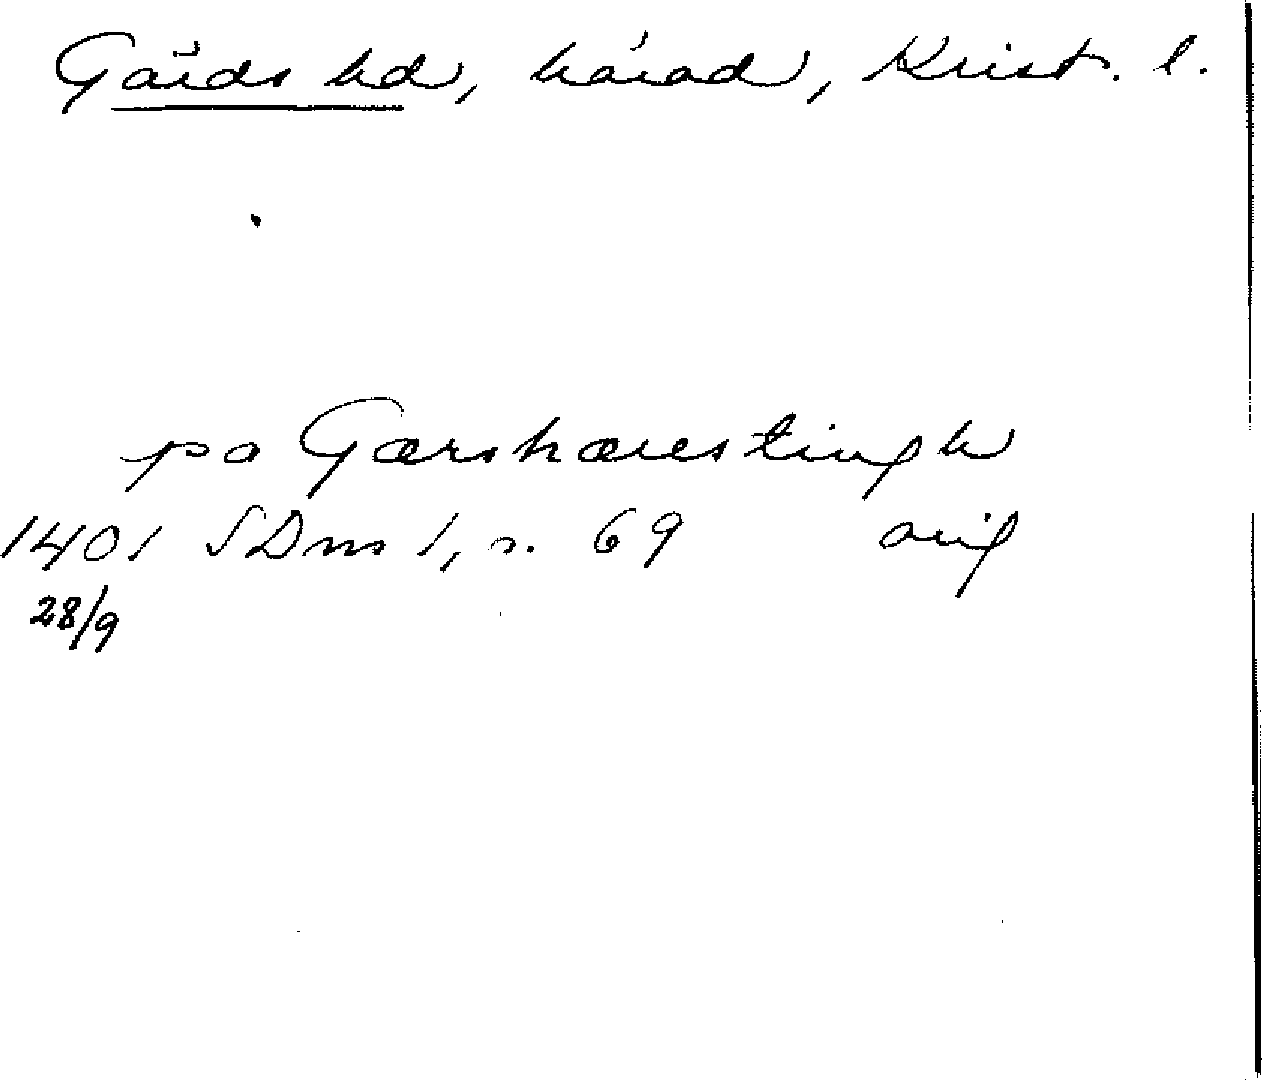 Gärds hd, härad, Krist. l.
pa Gærshærestingh
1401 SDns 1, s. 69 orig
28/9